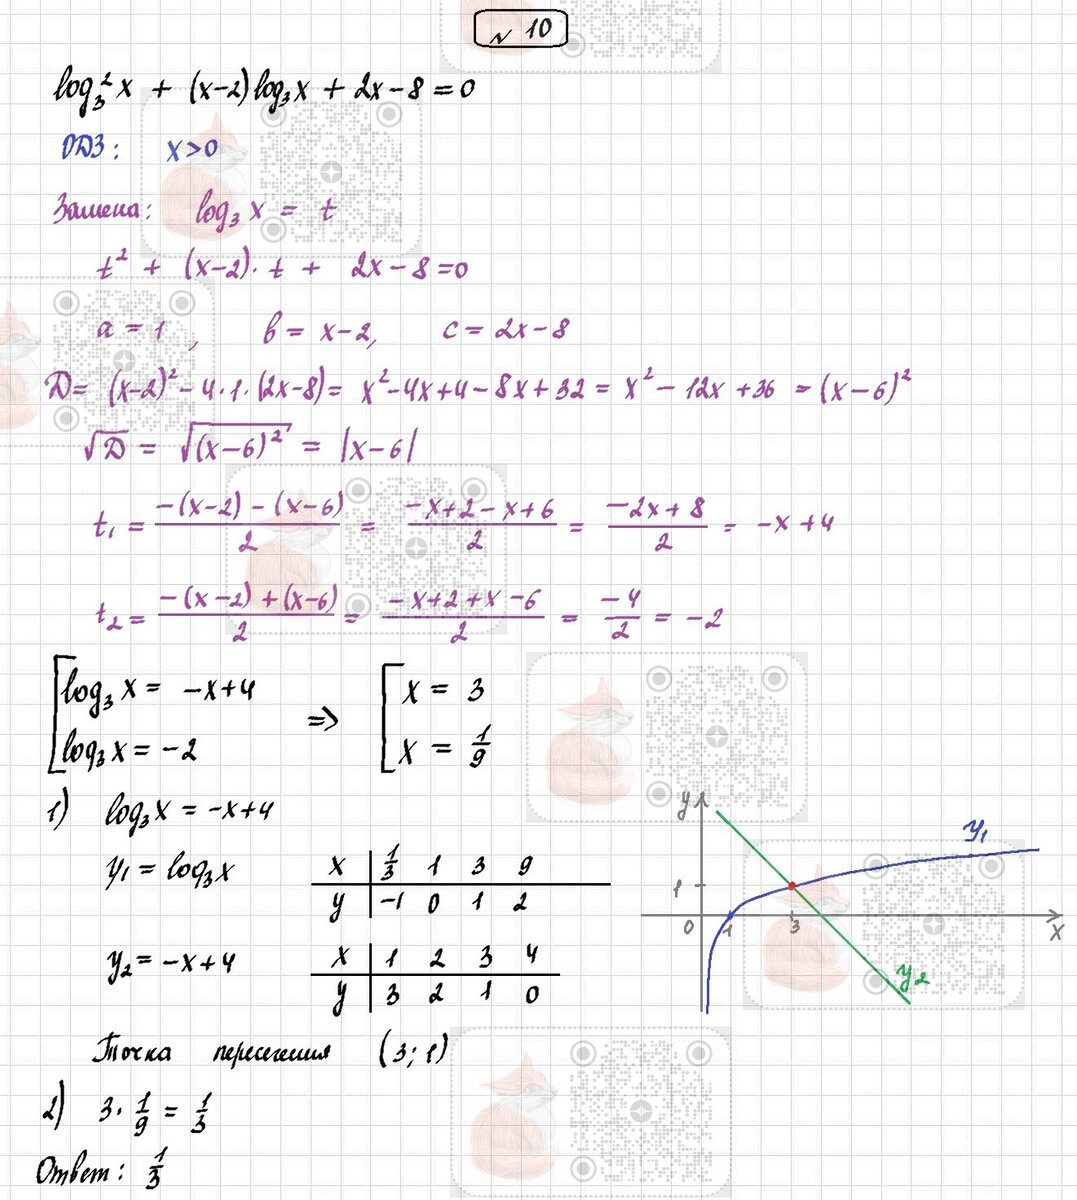 № 10
log₃²x + (x-2)log₃x + 2x-8=0
ОДЗ: x>0
Замена: log₃x = t
t² + (x-2)·t + 2x-8=0
a = 1, b = x-2, c = 2x-8
D = (x-2)²-4·1·(2x-8) = x²-4x+4-8x+32 = x²-12x+36 = (x-6)²
√D = √(x-6)² = |x-6|
t₁ = (-(x-2)-(x-6))/2 = (-x+2-x+6)/2 = (-2x+8)/2 = -x+4
t₂ = (-(x-2)+(x-6))/2 = (-x+2+x-6)/2 = -4/2 = -2
[log₃x = -x+4 => [x = 3
log₃x = -2 x = 1/9
1) log₃x = -x+4
y₁ = log₃x
x | 1/3 1 3 9
y | -1 0 1 2
y₂ = -x+4
x | 1 2 3 4
y | 3 2 1 0
y
y₁
1
0 1 3 x
y₂
Точка пересечения (3; 1)
2) 3·1/9 = 1/3
Ответ: 1/3